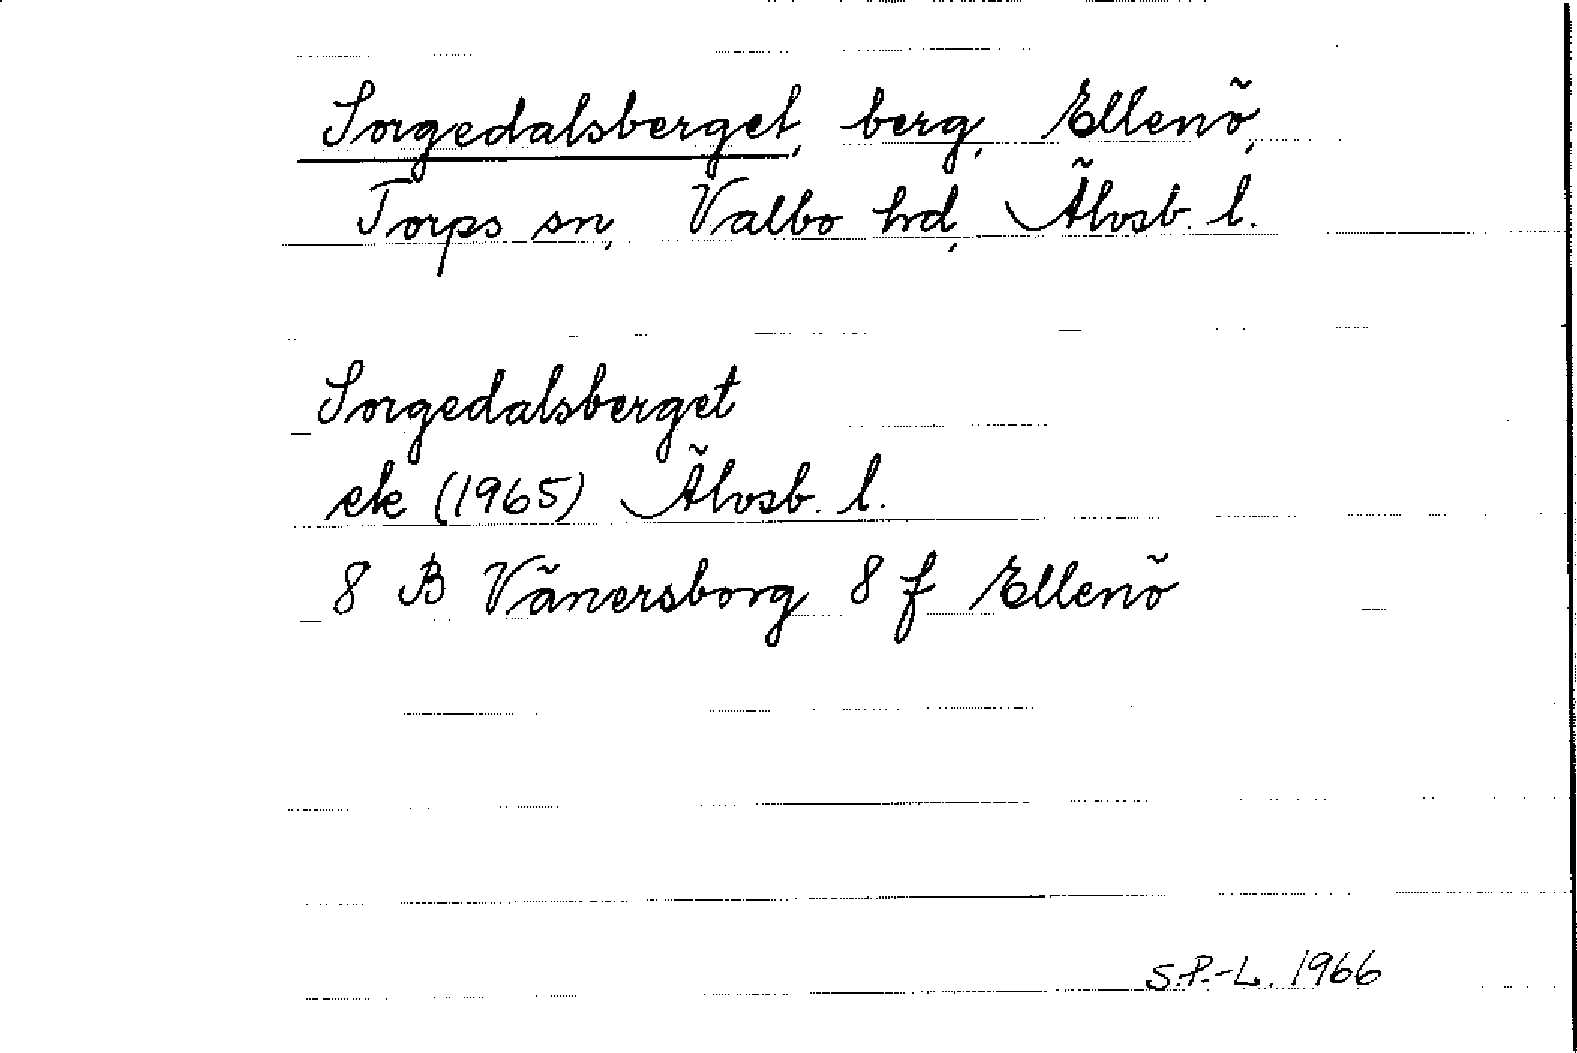 Sorgedalsberget, berg, Ellenö,
Torps sn, Valbo hd, Älvsb. l.
Sorgedalsberget
ek (1965) Älvsb. l.
8 B Vänersborg 8 f Ellenö
S.P.-L. 1966